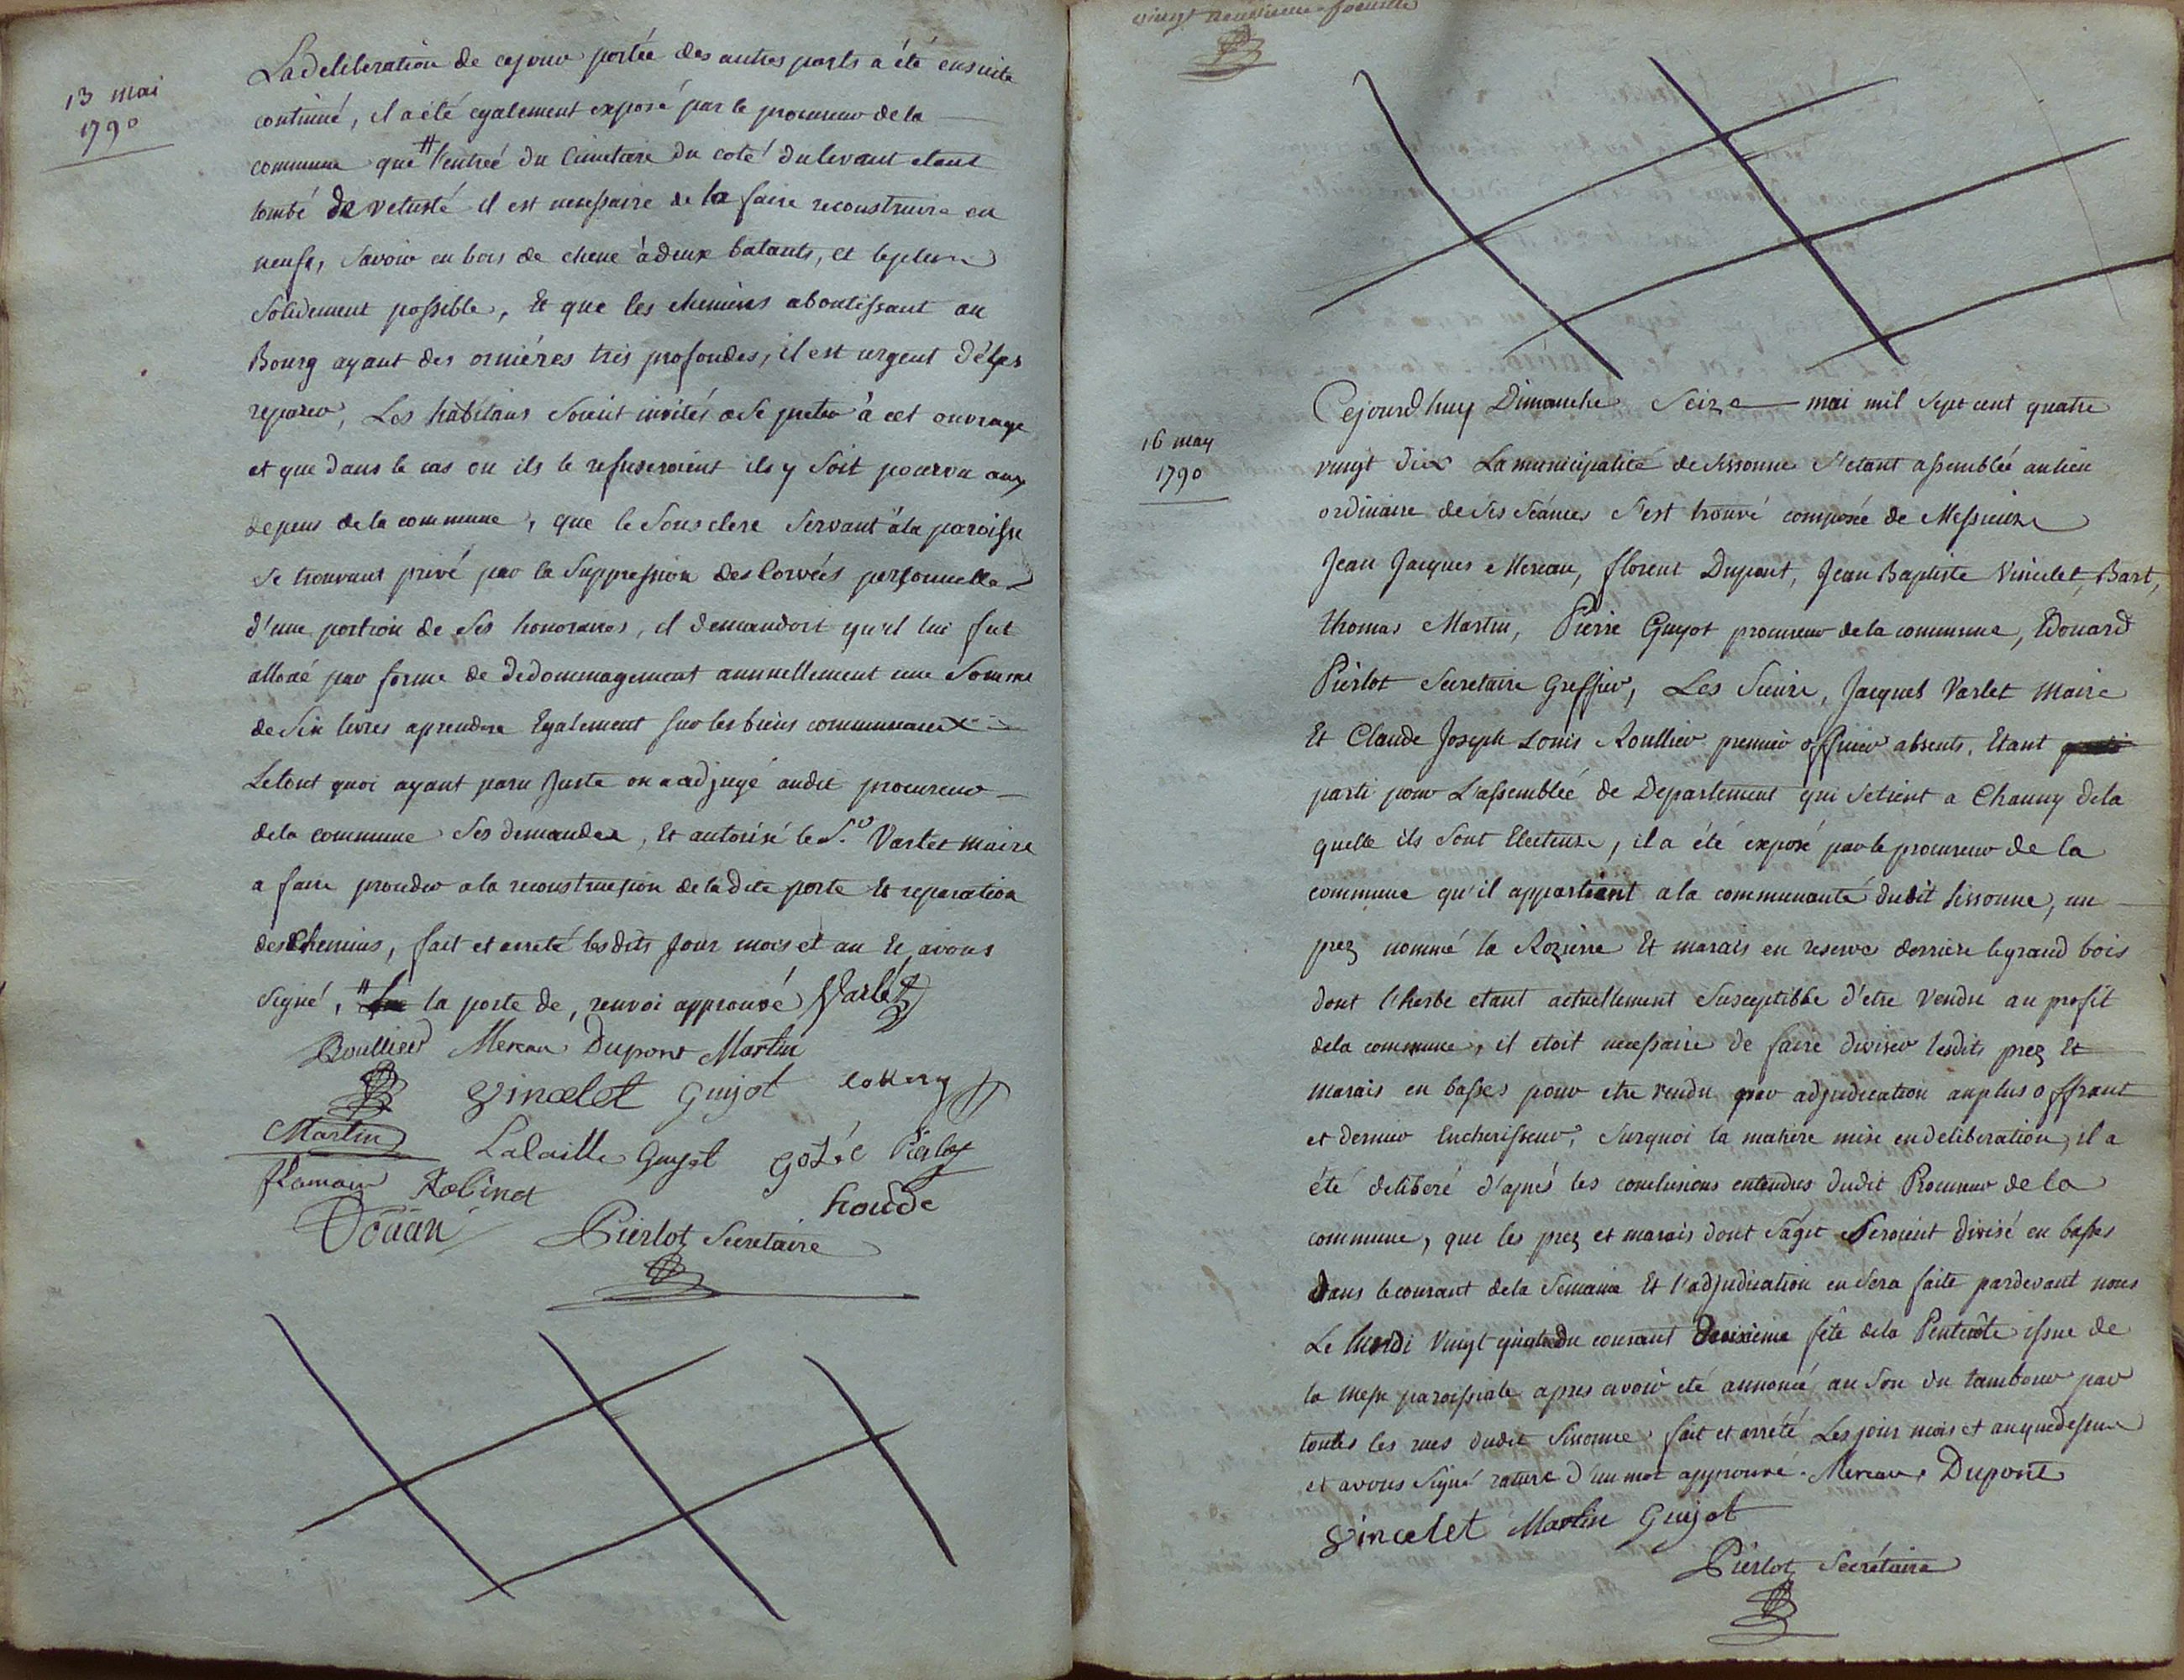 13 mai
1790
La deliberation de cejour portée des autres parts a été ensuite
continué, il a été egalement exposé par le procureur de la
commune que # l'entreé du Cimetiere du coté du levant etant
tombé de vetusté il est necessaire de la faire reconstruire en
neufs, savoir en bois de chene à deux batants, et le plus
solidement possible, Et que les chemins aboutissant au
Bourg ayant des orniéres très profondes, il est urgent de les
reparer, Les habitans soient invités a se preter à cet ouvrage
et que dans le cas ou ils le refuseroient ils y soit pourvu aux
depens de la commune, que le Sous clerc servant à la paroisse
se trouvant privé par la suppression des Corvées personnelles
d'une portion de ses honoraires, il demandoit qu'il lui fut
alloué par forme de dedommagement annuellement une Somme
de Six livres aprendre Egalement sur les biens communeaux
Le tout quoi ayant paru Juste on a adjugé audit procureur
de la commune ses demandes, Et autorisé le S.r Varlet maire
a faire proceder a la reconstruction de la dite porte Et reparation
des Chemins, fait et arreté lesdits Jour mois et an Et avons
signé, # la porte de, renvoi approuvé Varlet
Roullier Mereau Dupont Martin
Vincelet Guyot
Martin Lalaille Guyot Gozée Pierlot
flamain Robinot houde
Doüan Pierlot Secretaire
vingt neuvieme feuille
16 may
1790
Cejourd'huy Dimanche Seize mai mil Sept cent quatre
vingt dix La municipalité de Sissonne s'etant assemblée au lieu
ordinaire de ses Séances s'est trouvé composée de Messieurs
Jean Jacques Mereau, florent Dupont, Jean Baptiste Vincelet, Bart,
thomas Martin, Pierre Guyot procureur de la commune, Edouard
Pierlot Secretaire Greffier, Les Sieurs, Jacques Varlet Maire
Et Claude Joseph Louis Roullier premier officier absents, Etant
parti pour L'assemblée de Departement qui se tient a Chauny de la
quelle ils sont Electeurs, il a été exposé par le procureur de la
commune qu'il appartient a la communauté dudit Sissonne, un
prez nommé la Rozierre Et marais en reserve derriere le grand bois
dont l'herbe etant actuellement Susceptible d'etre vendu au profit
de la commune, il etoit necessaire de faire diviser lesdits prez Et
marais en basses pour etre vendu par adjudication au plus offrant
et dernier Encherisseur, surquoi la matiere mise en deliberation, il a
été deliberé d'après les conclusions entendues dudit Procureur de la
commune, que les prez et marais dont s'agit Seroient divisé en basses
dans le courant de la Semaine Et l'adjudication en sera faite pardevant nous
Le lundi vingt quatre du courant deuxieme fête de la Pentecôte issue de
la messe paroissiale apres avoir été annoncé au son du tambour par
toutes les rues dudit Sissonne fait et arrété Les jour mois et an que dessus
et avons signé rature d'un mot approuvé. Mereau, Dupont
Vincelet Martin Guyot
Pierlot Secrétaire